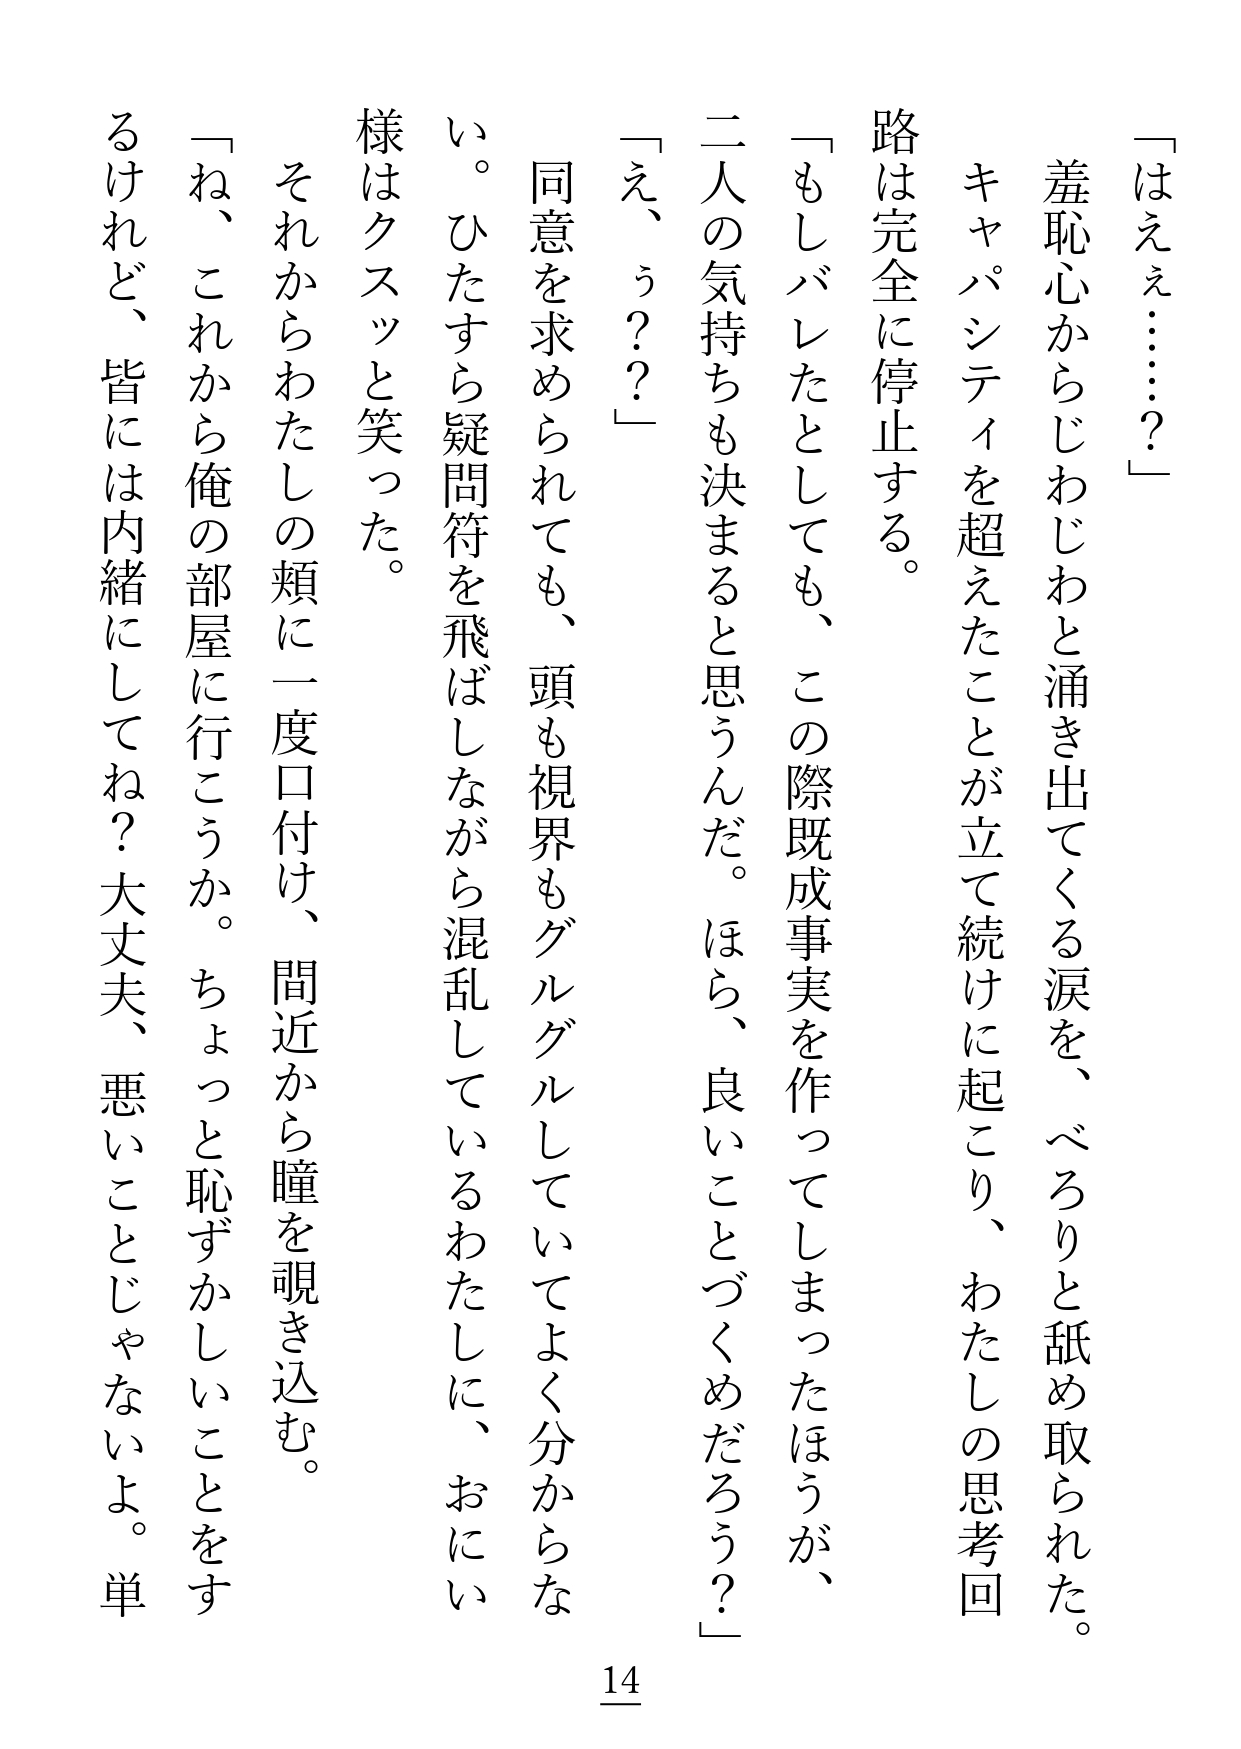 「はえぇ……？」
　羞恥心からじわじわと涌き出てくる涙を、べろりと舐め取られた。
　キャパシティを超えたことが立て続けに起こり、わたしの思考回
路は完全に停止する。
「もしバレたとしても、この際既成事実を作ってしまったほうが、
二人の気持ちも決まると思うんだ。ほら、良いことづくめだろう？」
「え、ぅ？？」
　同意を求められても、頭も視界もグルグルしていてよく分からな
い。ひたすら疑問符を飛ばしながら混乱しているわたしに、おにい
様はクスッと笑った。
　それからわたしの頬に一度口付け、間近から瞳を覗き込む。
「ね、これから俺の部屋に行こうか。ちょっと恥ずかしいことをす
るけれど、皆には内緒にしてね？大丈夫、悪いことじゃないよ。単
14